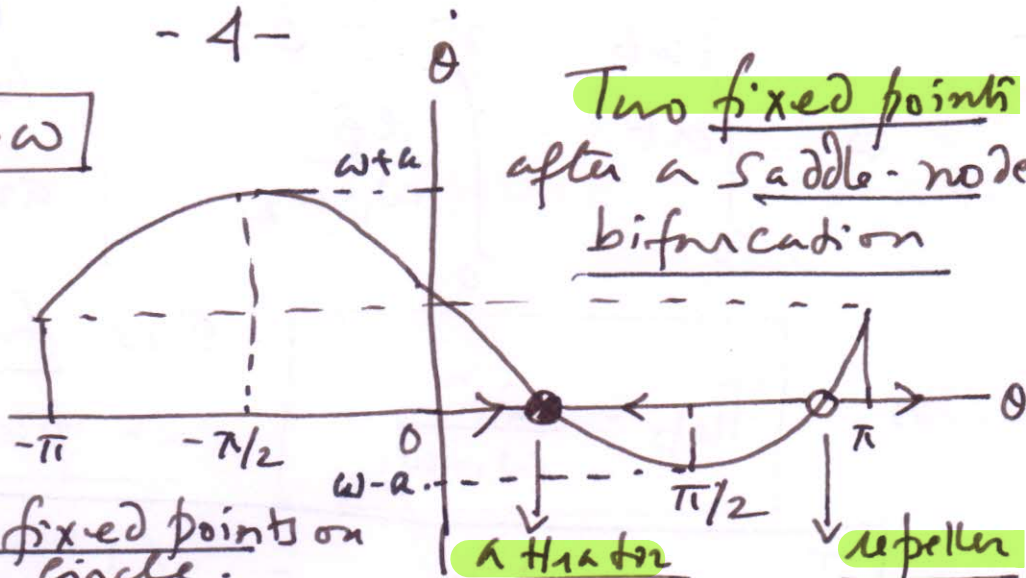 - 4 -
ω
θ̇
Two fixed points
after a saddle-node
bifurcation
ω+a
-π
-π/2
0
π/2
π
θ
ω-a
fixed points on
circle.
attractor
repeller